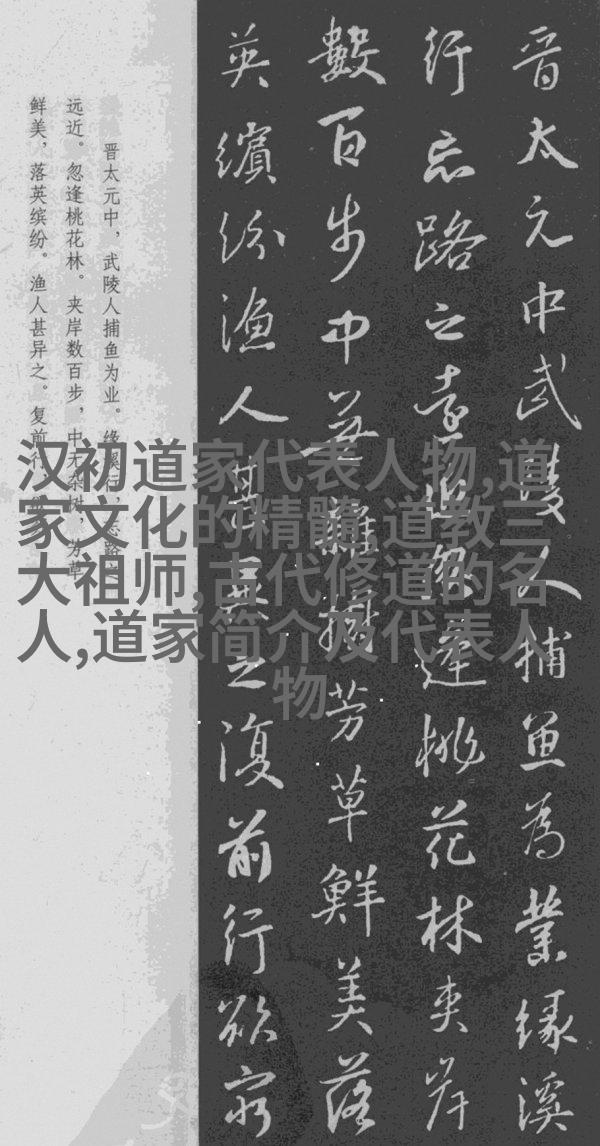 晋太元中武陵人捕魚為業緣溪
行忘路之遠近忽逢桃花林夾岸
數百步中無雜樹芳草鮮美落
英繽紛漁人甚異之復前行欲窮
晋太元中，武陵人捕鱼为业。缘溪行，忘路
远近。忽逢桃花林。夹岸数百步，中无杂树，芳草
鲜美，落英缤纷。渔人甚异之。复前行
汉初道家代表人物,道
家文化的精髓,道教三
大祖师,古代修道的名
人,道家简介及代表人
物